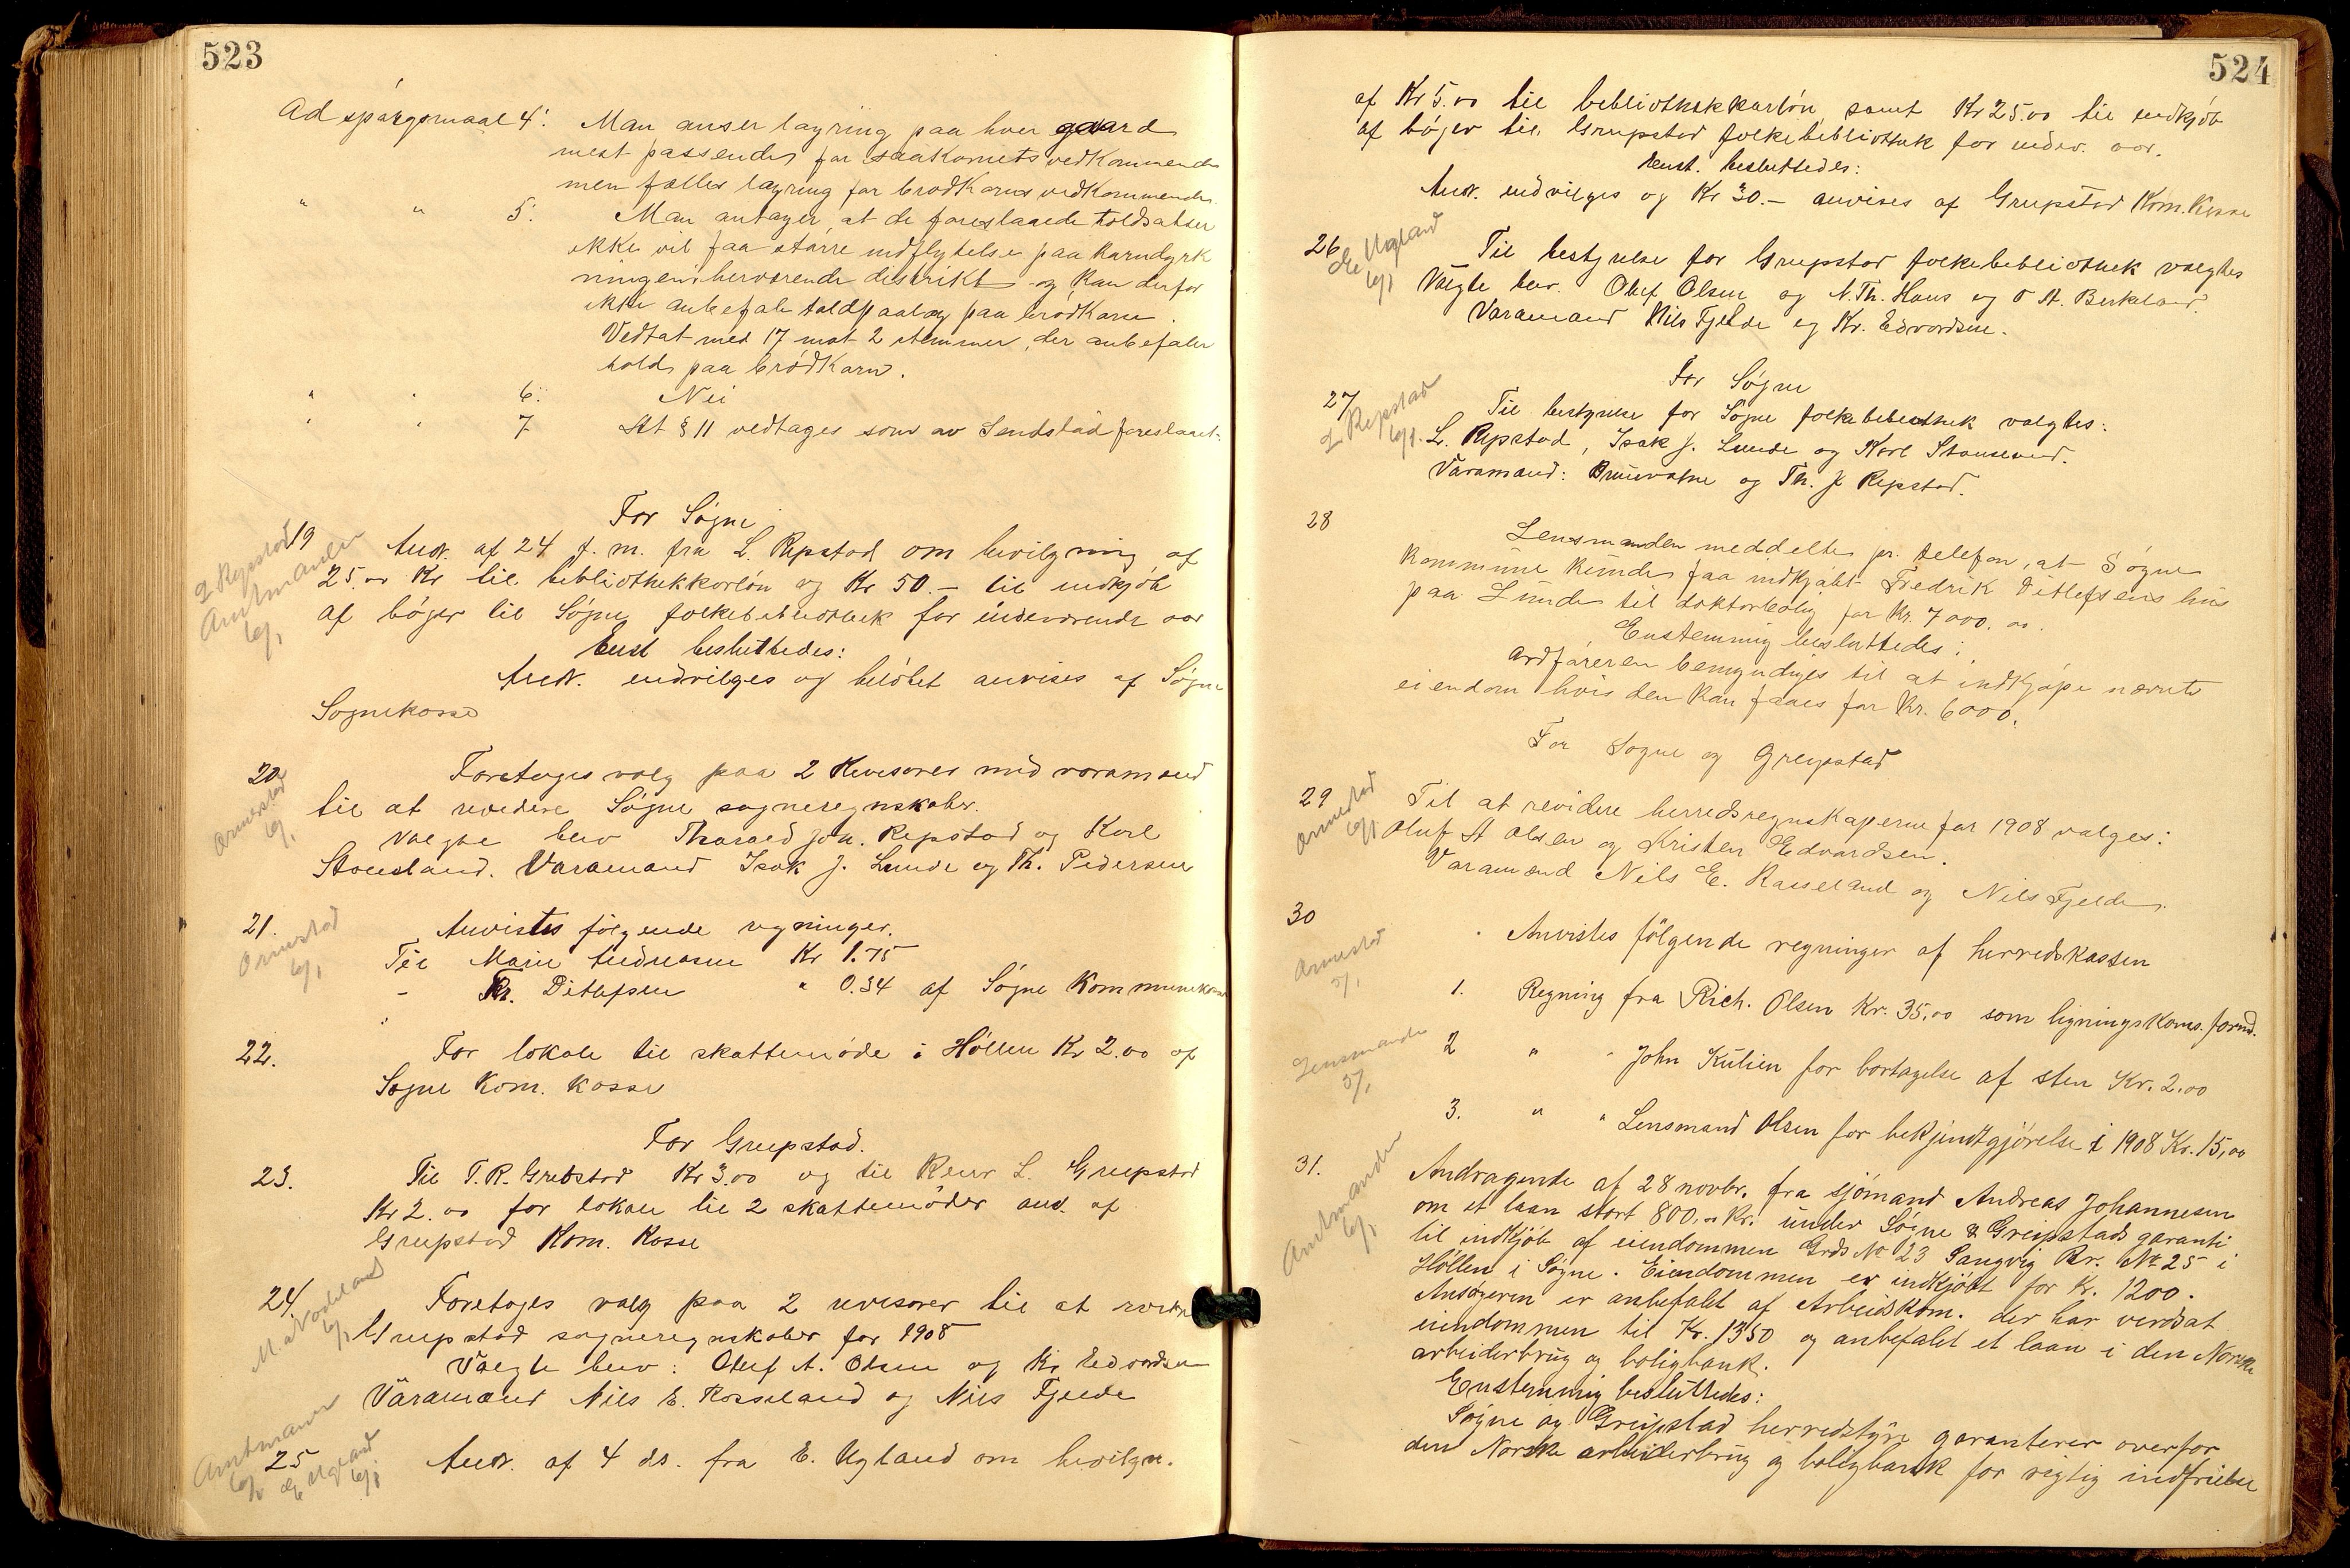 523
Ad spørgsmaal 4: Man anser lagring paa hver gaard
mest passende for saakornets vedkommende
men fælles lagring for brødkorns vedkommende.
" " 5. Man antager, at de foreslaaede toldsatser
ikke vil faa større indflytelse paa korndyrk
ningen i herværende distrikt og kan derfor
ikke anbefale toldpaalæg paa brødkorn.
Vedtat med 17 mot 2 stemmer, der anbefaler
told paa brødkorn.
" " 6. Nei
" " 7 At § 11 vedtages som av Sendstad foreslaaet.
For Søgne
L Repstad
Amtmanden
6/1
19 Andr. af 24 f. m. fra L. Repstad om bevilgning af
25.00 Kr til bibliothekkarløn og Kr 50.- til indkjøb
af bøger til Søgne folkebibliothek for indeværende aar
Enst besluttedes:
Andr. indvilges og beløbet anvises af Søgne
Sognekasse
Ornestad
6/1
20. Foretages valg paa 2 Revisorer med varamænd
til at revidere Søgne sogneregnskaber.
Valgte blev Tharald Joh. Repstad og Karl
Stousland. Varamænd Isak J. Lunde og Th. Pedersen
Ornestad
6/1
21. Anvistes følgende regninger.
Til Marie Andreasen Kr 1.75
- Fr. Ditlefsen " 0.34 af Søgne Kommunekasse
22. For lokale til skattemøde i Høllen Kr 2.00 af
Søgne Kom. Kasse
For Greipstad.
23. Til T. R. Grebstad Kr 3.00 og til Reier L. Greipstad
Kr 2.00 for lokale til 2 skattemøder anv. af
Greipstad Kom. Kasse
6/1
24. Foretages valg paa 2 revisorer til at revidere
Greipstad sogneregnskaber for 1908
Valgte blev: Oluf A. Olsen og Kr Edvardsen
Varamænd Nils E. Rosseland og Nils Fjelde
Amtmanden
6/1
E Ugland
6/1
25 Andr. af 4 ds. fra E. Ugland om bevilgn.
524
af Kr 5.00 til bibliothekkarløn samt Kr 25.00 til indkjøb
af bøger til Greipstad folkebibliothek for indev. aar.
Enst. besluttedes:
Andr. indvilges og Kr 30.- anvises af Greipstad Kom. Kasse
E Ugland
6/1
26 Til bestyrelse for Greipstad folkebibliothek valgtes
Valgte blev Oluf Olsen og N. Th. Haus og O A. Berkeland.
Varamænd Nils Fjelde og Kr. Edvardsen.
For Søgne
L Repstad
6/1.
27 Til bestyrelse for Søgne folkebibliothek valgtes:
L. Repstad, Isak J. Lunde og Karl Stousland.
Varamænd: Bruvatne og Th. J Repstad.
28 Lensmanden meddeltes pr. telefon, at Søgne
Kommune kunde faa indkjøbt Fredrik Ditlefsens hus
paa Lunde til doktorbolig for Kr. 7000.00.
Enstemmig besluttedes:
Ordføreren bemyndiges til at indkjøpe nævnte
eiendom hvis den kan faaes for Kr. 6000.
For Søgne og Greipstad
Ornestad
6/1
29 Til at revidere herredsregnskaperne for 1908 valges:
Oluf A Olsen og Kristen Edvardsen.
Varamænd Nils E. Rasseland og Nils Fjelde.
Ornestad
5/1
30 Anvistes følgende regninger af herredskassen
1. Regning fra Rich. Olsen Kr. 35,00 som ligningskoms. formd.
Lensmanden
5/1
2 " " John Kulien for bortagelse af sten Kr. 2.00
3. " " Lensmand Olsen for bekjendtgjørelse i 1908 Kr. 15,00
Amtmanden
6/1
31. Andragende af 28 novbr. fra sjømand Andreas Johannesen
om et laan stort 800.- Kr. under Søgne & Greipstads garanti
til indkjøb af eiendommen Grds No 23 Langvig Br. No 25 i
Høllen i Søgne. Eiendommen er indkjøbt for Kr. 1200.
Ansøgeren er anbefalet af Arbeidskom. der har verdsat
eiendommen til Kr. 1350 og anbefalet et laan i den Norske
arbeiderbrug og boligbank.
Enstemmig besluttedes:
Søgne og Greipstad herredstyre garanterer overfor
den Norske arbeiderbrug og boligbank for rigtig indfrielse